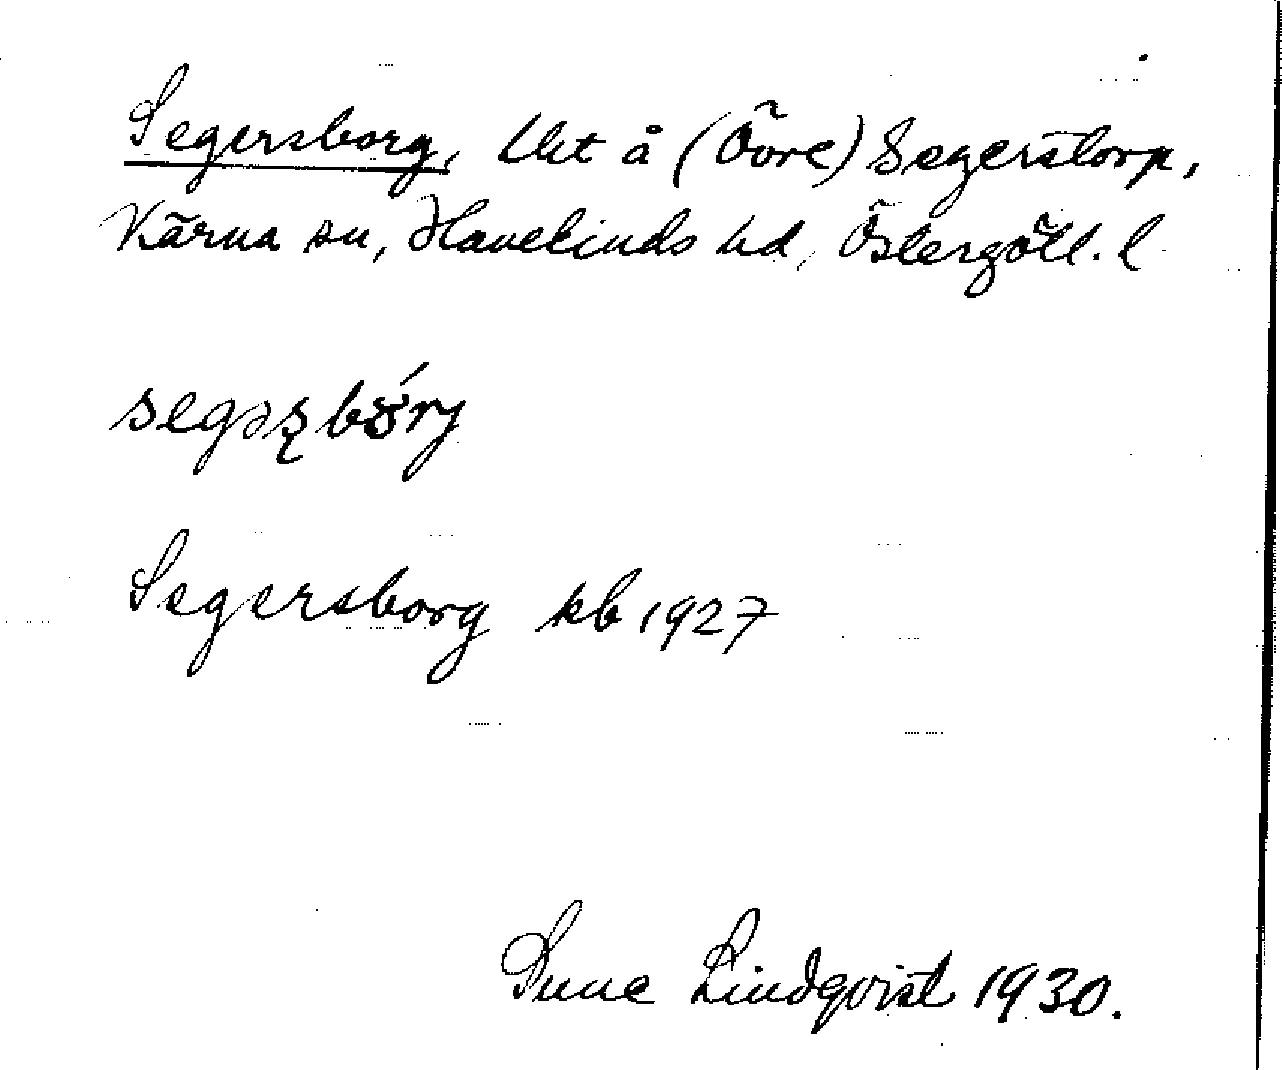 Segersborg, lht å (Övre) Segerstorp,
Kärna sn, Hanekinds hd, Östergötl. l
segəʂbórj
Segersborg kb 1927
Sune Lindqvist 1930.